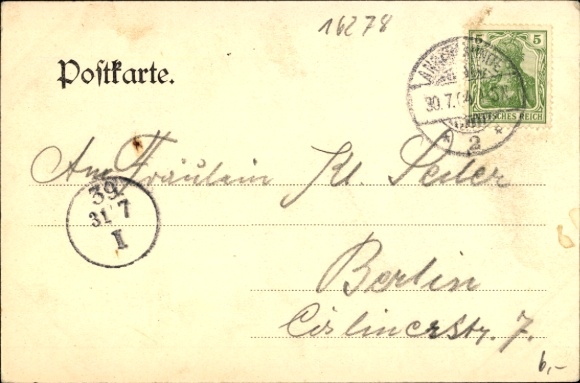 16278
Postkarte.
5 5
30.7.04
DEUTSCHES REICH
* 2 *
An Fräulein Kl. Seiler
39.
31 7
I
Berlin
Cislinerstr. 7.
6,-